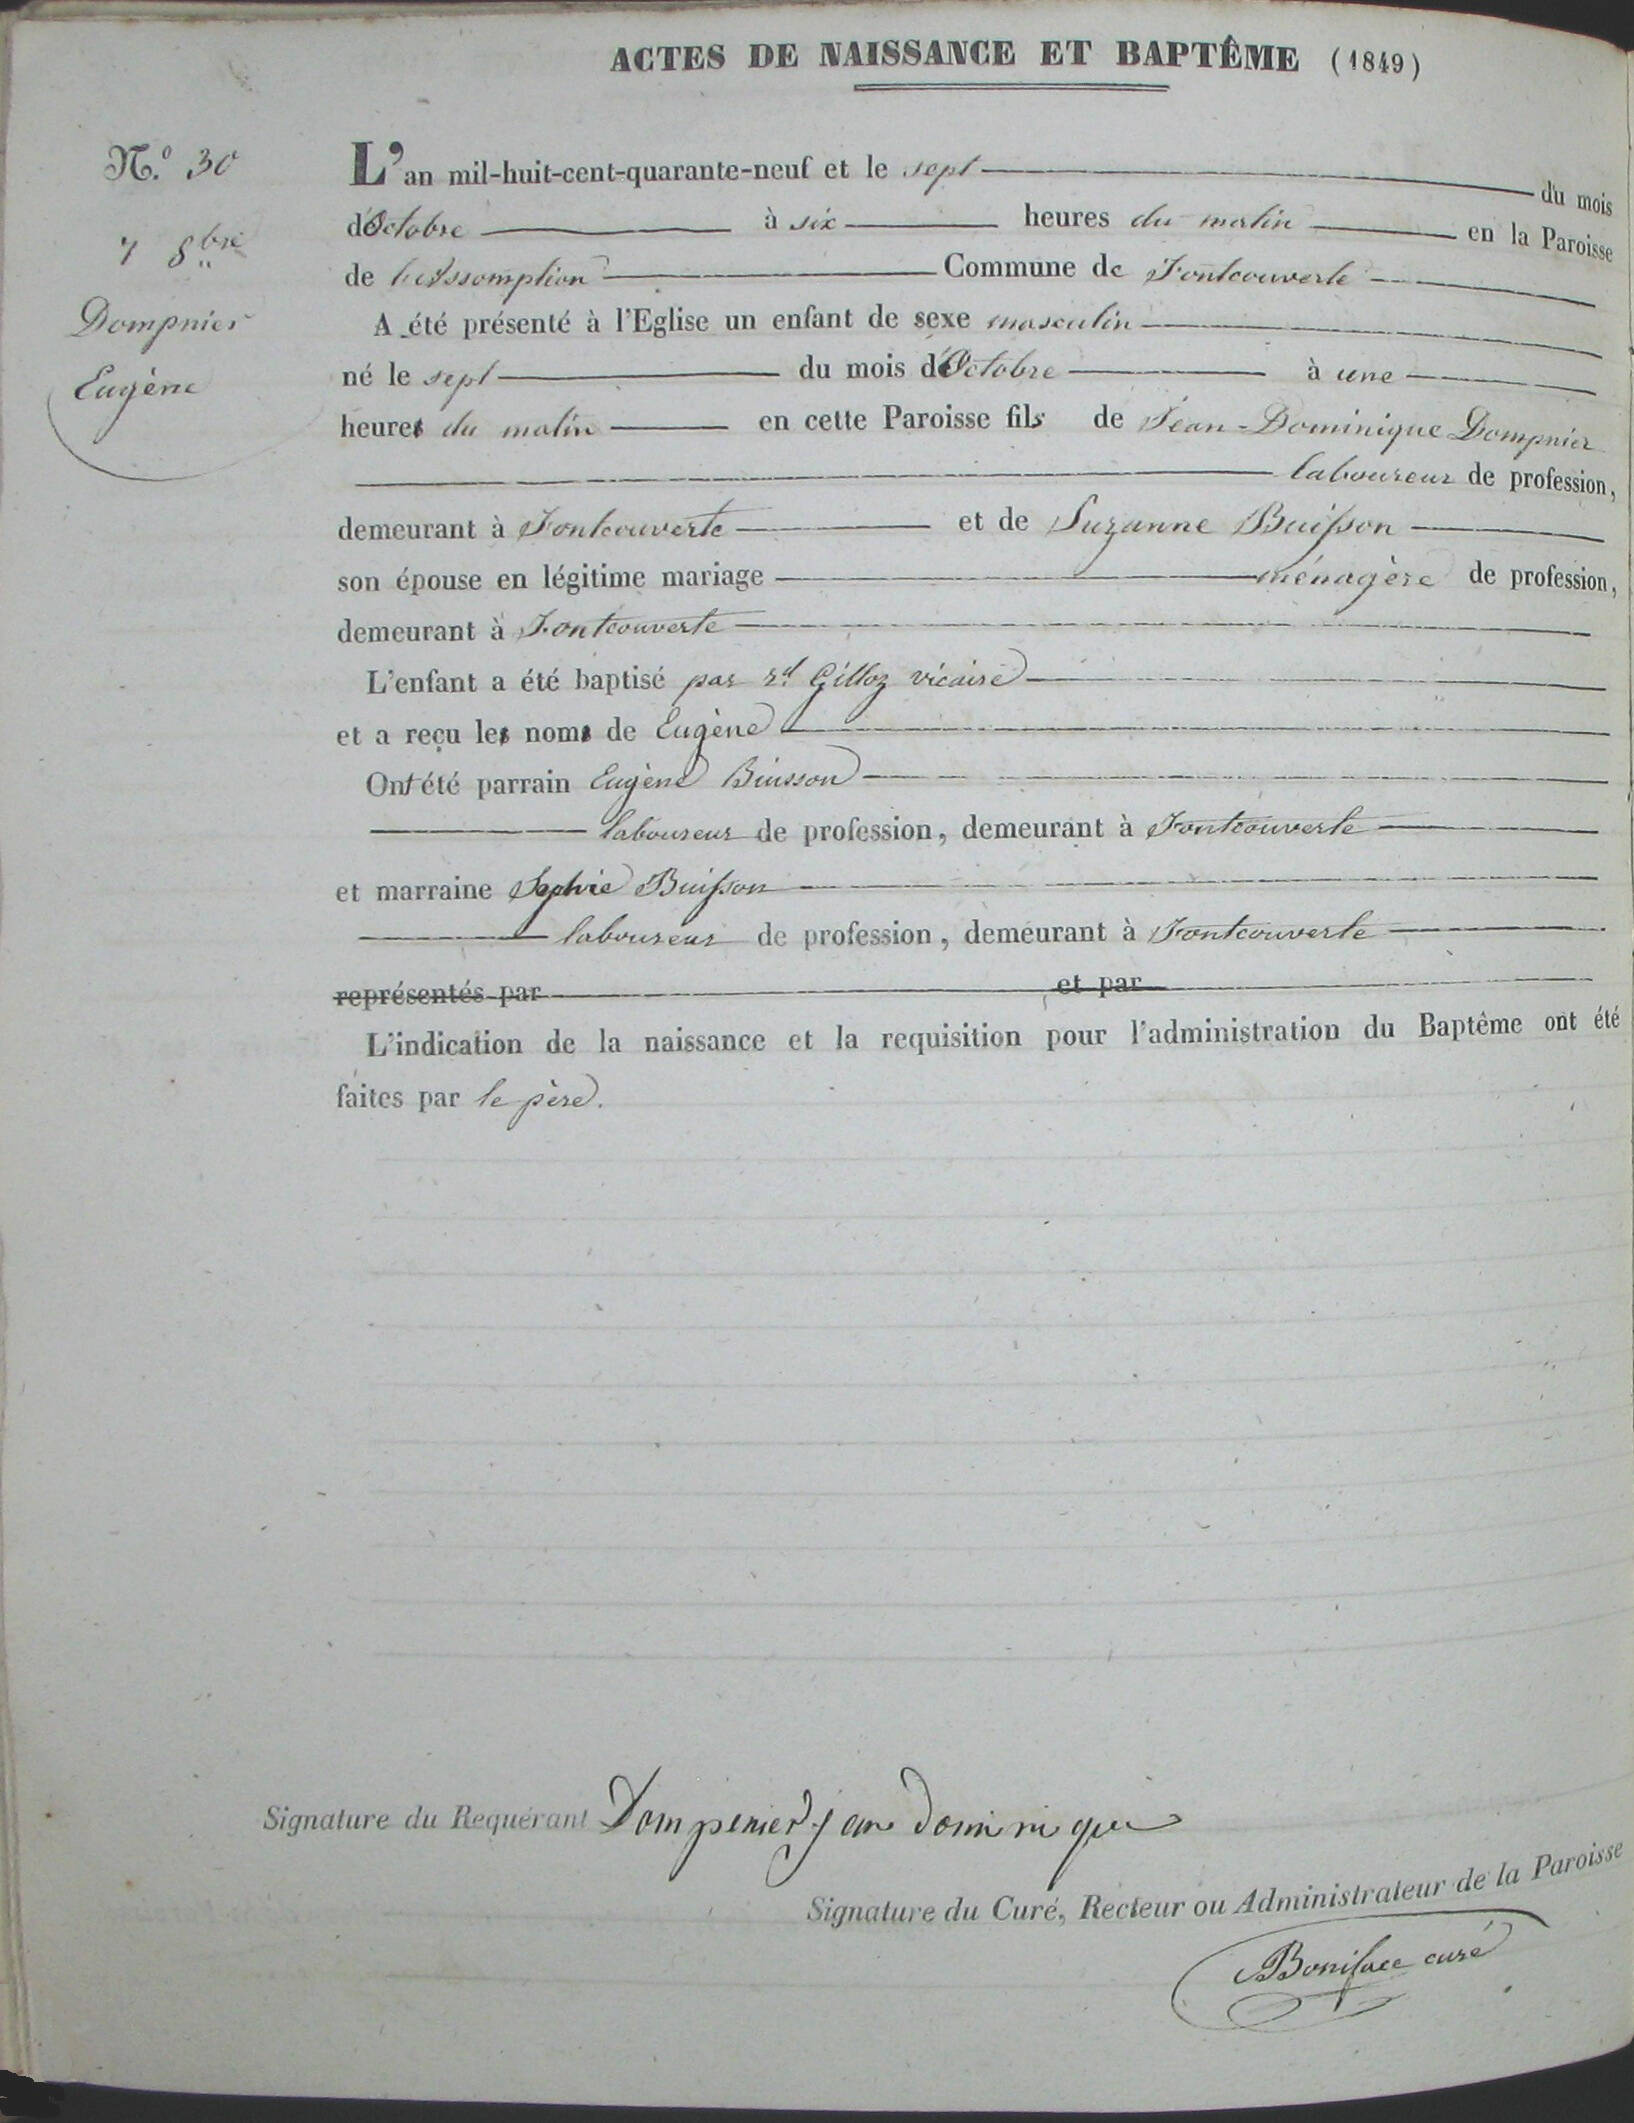 ACTES DE NAISSANCE ET BAPTÊME (1849)
N.º 30
7 8bre
Dompnier
Eugène
L'an mil-huit-cent-quarante-neuf et le sept du mois
d'Octobre à six heures du matin en la Paroisse
de l'Assomption Commune de Fontcouverte
A été présenté à l'Eglise un enfant de sexe masculin
né le sept du mois d'Octobre à une
heure du matin en cette Paroisse fils de Jean-Dominique Dompnier
laboureur de profession,
demeurant à Fontcouverte et de Suzanne Buisson
son épouse en légitime mariage ménagère de profession,
demeurant à Fontcouverte
L'enfant a été baptisé par rd Gilloz vicaire
et a reçu le nom de Eugène
Ont été parrain Eugène Buisson
laboureur de profession, demeurant à Fontcouverte
et marraine Sophie Buisson
laboureur de profession, demeurant à Fontcouverte
représentés par et par
L'indication de la naissance et la requisition pour l'administration du Baptême ont été
faites par le père.
Signature du Requérant Dompnier jean dominique
Signature du Curé, Recteur ou Administrateur de la Paroisse
Boniface curé